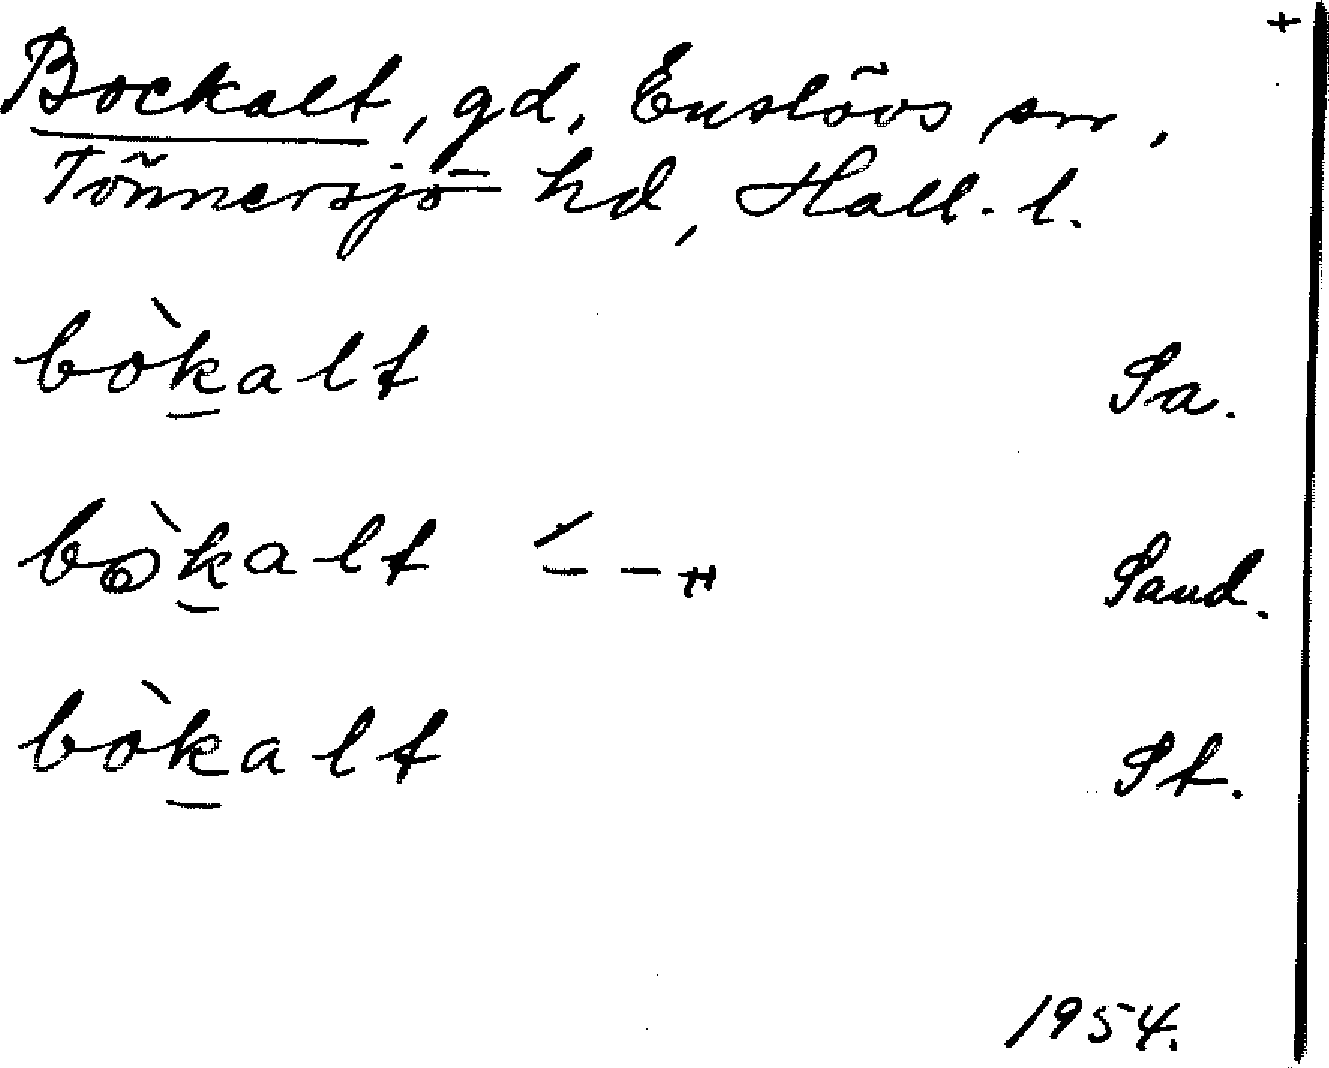 +
Bockalt, gd, Enslövs sn,
Tönnersjö hd, Hall. l.
bòk̲alt Sa.
bòk̲alt Sand.
bòk̲alt St.
1954.